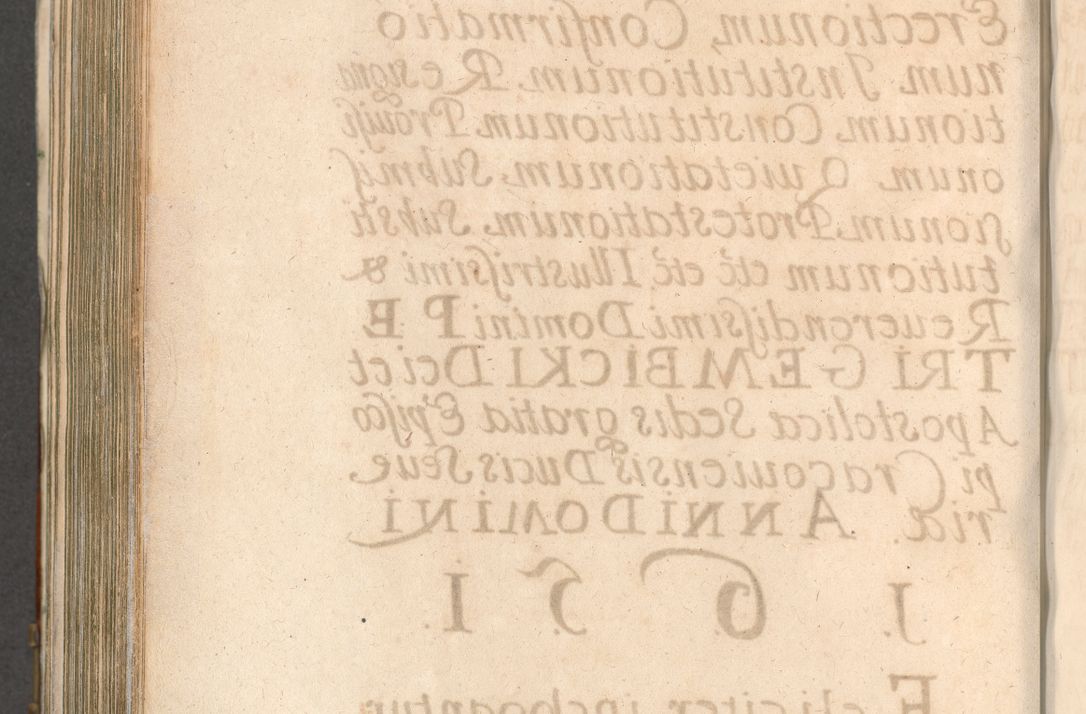 Erectionum, Confirmatio
num. Institutionum. Resigna
tionum. Constitutionum. Provisi
onum. Quietationum. Submiſ
ſionum. Protestationum. Substi
tutionum etc̃ etc̃ Illustriſsimi &
Reuerendiſsimi Domini P E
TRI GEMBICKI Dei et
Apostolica Sedis gratia Epiſco
pi Cracouiensis Ducis Seue
riæ. ANNI DOMINI
J. 6. 5. I.
Feliciter inchoantur